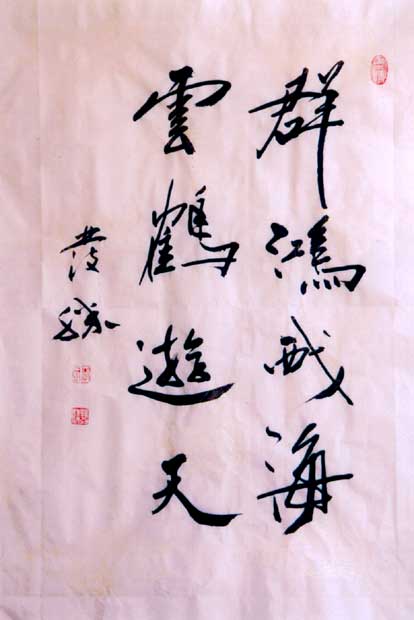 群鴻戲海
雲鶴遊天
發勝